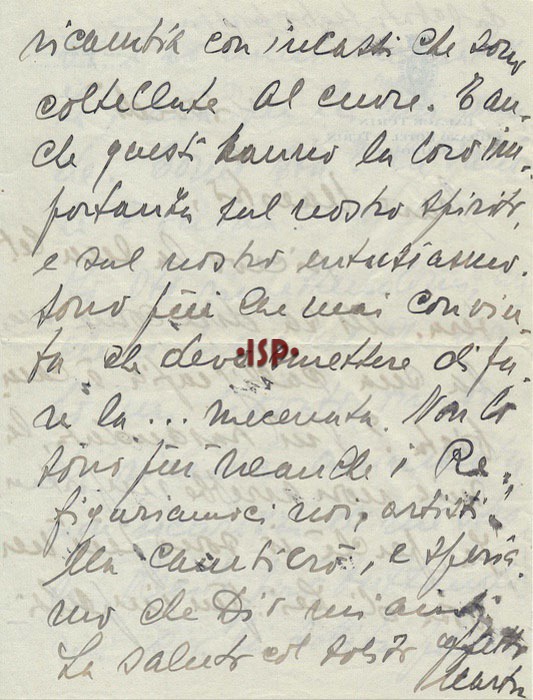 con incassi che sono
coltellate al cuore. E an-
che questi hanno la loro im-
portanza sul nostro spirito,
e sul nostro entusiasmo.
Sono più che mai convin-
ta che devo smettere di fa-
re la ... mecenata. Non lo
sono più neanche i Re,
figuriamoci noi, artisti!
Ma cantierò, e speria-
mo che Dio mi aiuti.
La saluto col solito affetto
·ISP·